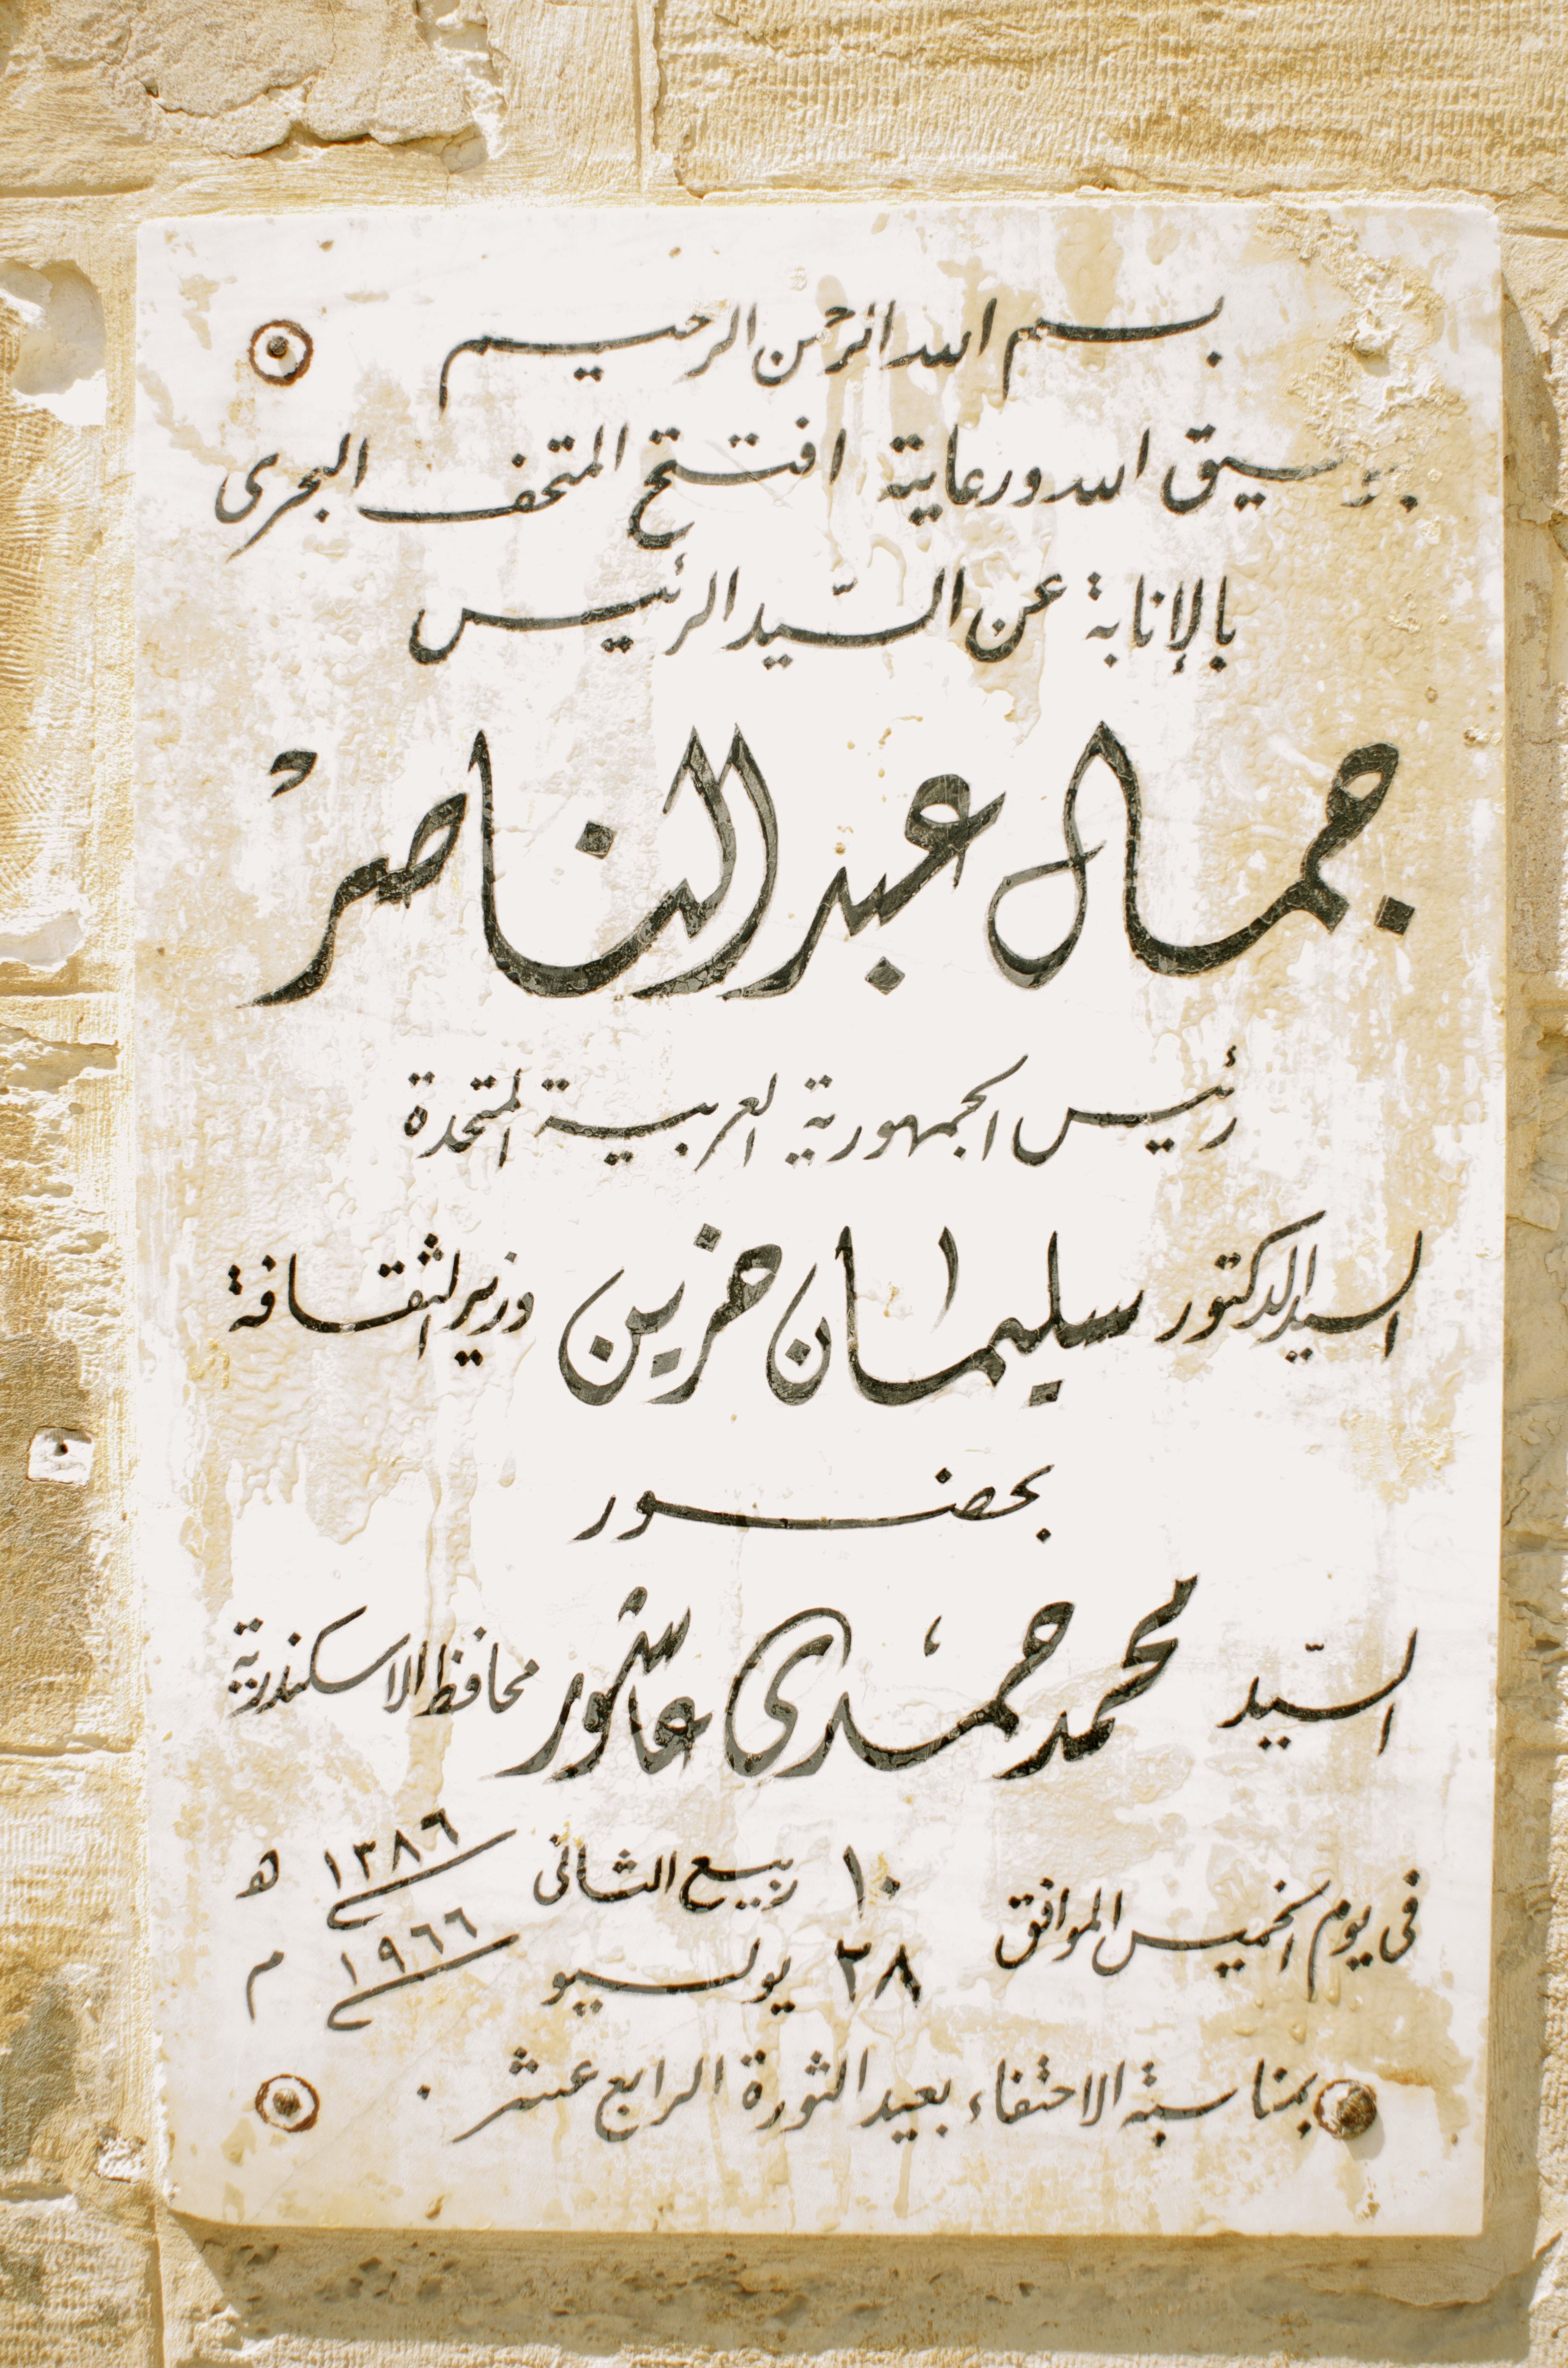 بسم الله الرحمن الرحيم
بتوفيق الله ورعايته افتتح المتحف البحرى
بالإنابة عن السّيد الرئيس
جمال عبد الناصر
رئيس الجمهورية العربية المتحدة
السيد الدكتور سليمان حزين وزير الثقافة
بحضور
السّيد محمد حمدى عاشور محافظ الاسكندرية
فى يوم الخميس الموافق ١٠ ربيع الثانى ١٣٨٦ ه
٢٨ يوليو ١٩٦٦ م
بمناسبة الاحتفاء بعيد الثورة الرابع عشر .